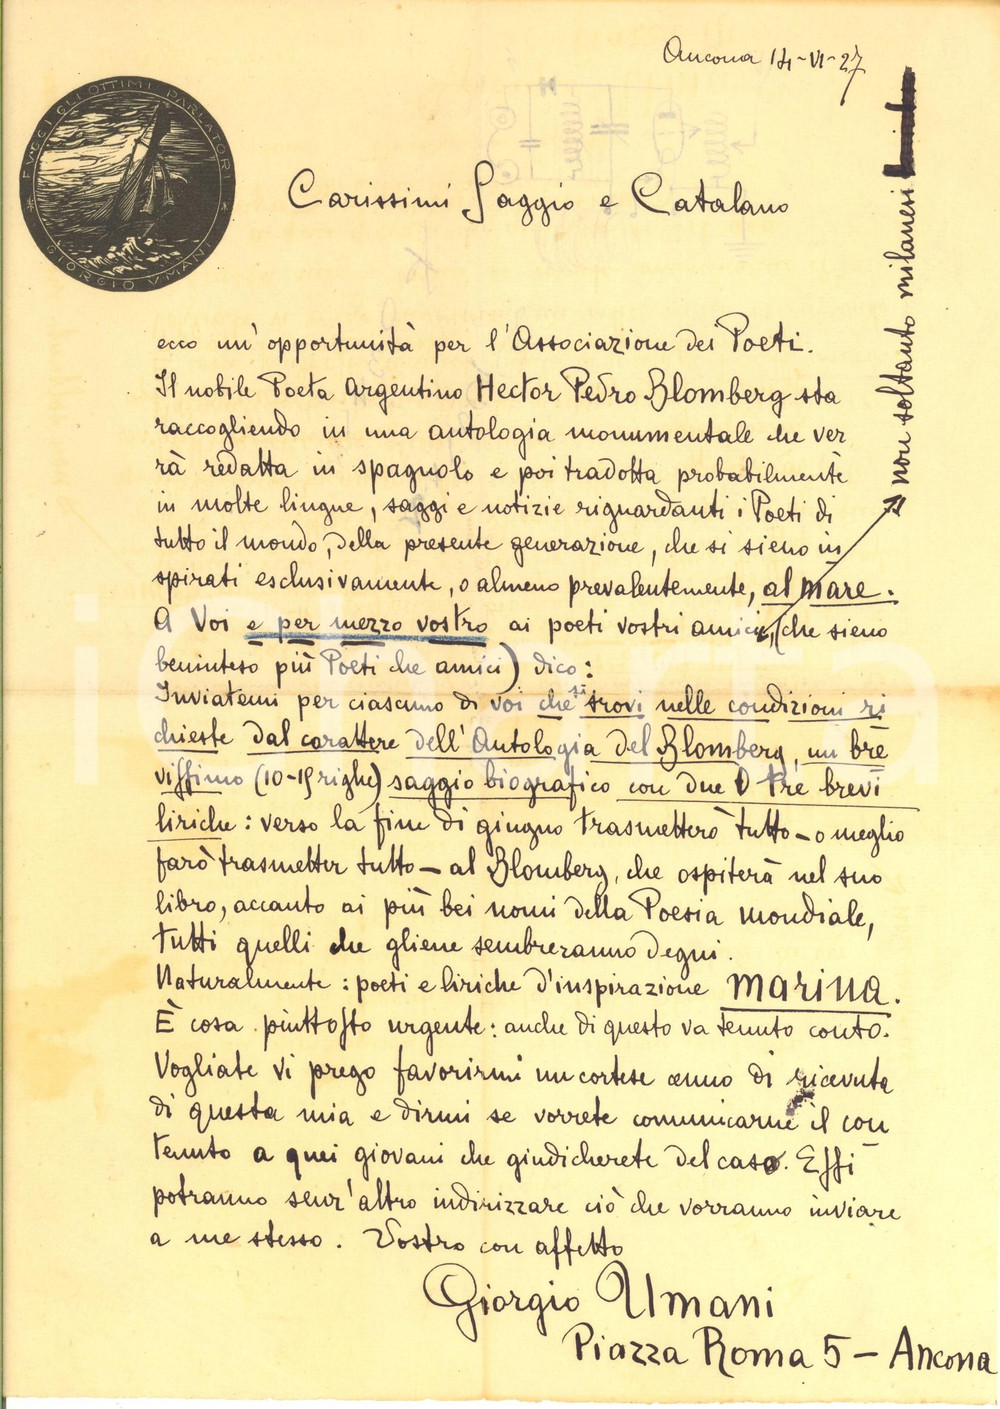 Ancona 14-VI-27
FVGGI GLI OTTIMI PARLATORI
GIORGIO VMANI
Carissimi Saggio e Catalano
ecco un'opportunità per l'Associazione dei Poeti.
Il nobile Poeta Argentino Hector Pedro Blomberg sta
raccogliendo in una antologia monumentale che ver
rà redatta in spagnolo e poi tradotta probabilmente
in molte lingue, saggi e notizie riguardanti i Poeti di
tutto il mondo, della presente generazione, che si sieno in
spirati esclusivamente, o almeno prevalentemente, al mare.
A Voi e per mezzo vostro ai poeti vostri amici, (che sieno
non soltanto milanesi
beninteso più Poeti che amici) dico:
Inviatemi per ciascuno di voi che si trovi nelle condizioni ri
chieste dal carattere dell'Antologia del Blomberg, un bre
vissimo (10-15 righe) saggio biografico con due o tre brevi
liriche: verso la fine di giugno trasmetterò tutto - o meglio
farò trasmetter tutto - al Blomberg, che ospiterà nel suo
libro, accanto ai più bei nomi della Poesia mondiale,
tutti quelli che gliene sembreranno degni.
Naturalmente: poeti e liriche d'inspirazione marina.
È cosa piuttosto urgente: anche di questo va tenuto conto.
Vogliate vi prego favorirmi un cortese cenno di ricevuta
di questa mia e dirmi se vorrete comunicarne il con
tenuto a quei giovani che giudicherete del caso. Essi
potranno senz'altro indirizzare ciò che vorranno inviare
a me stesso. Vostro con affetto
Giorgio Umani
Piazza Roma 5 - Ancona